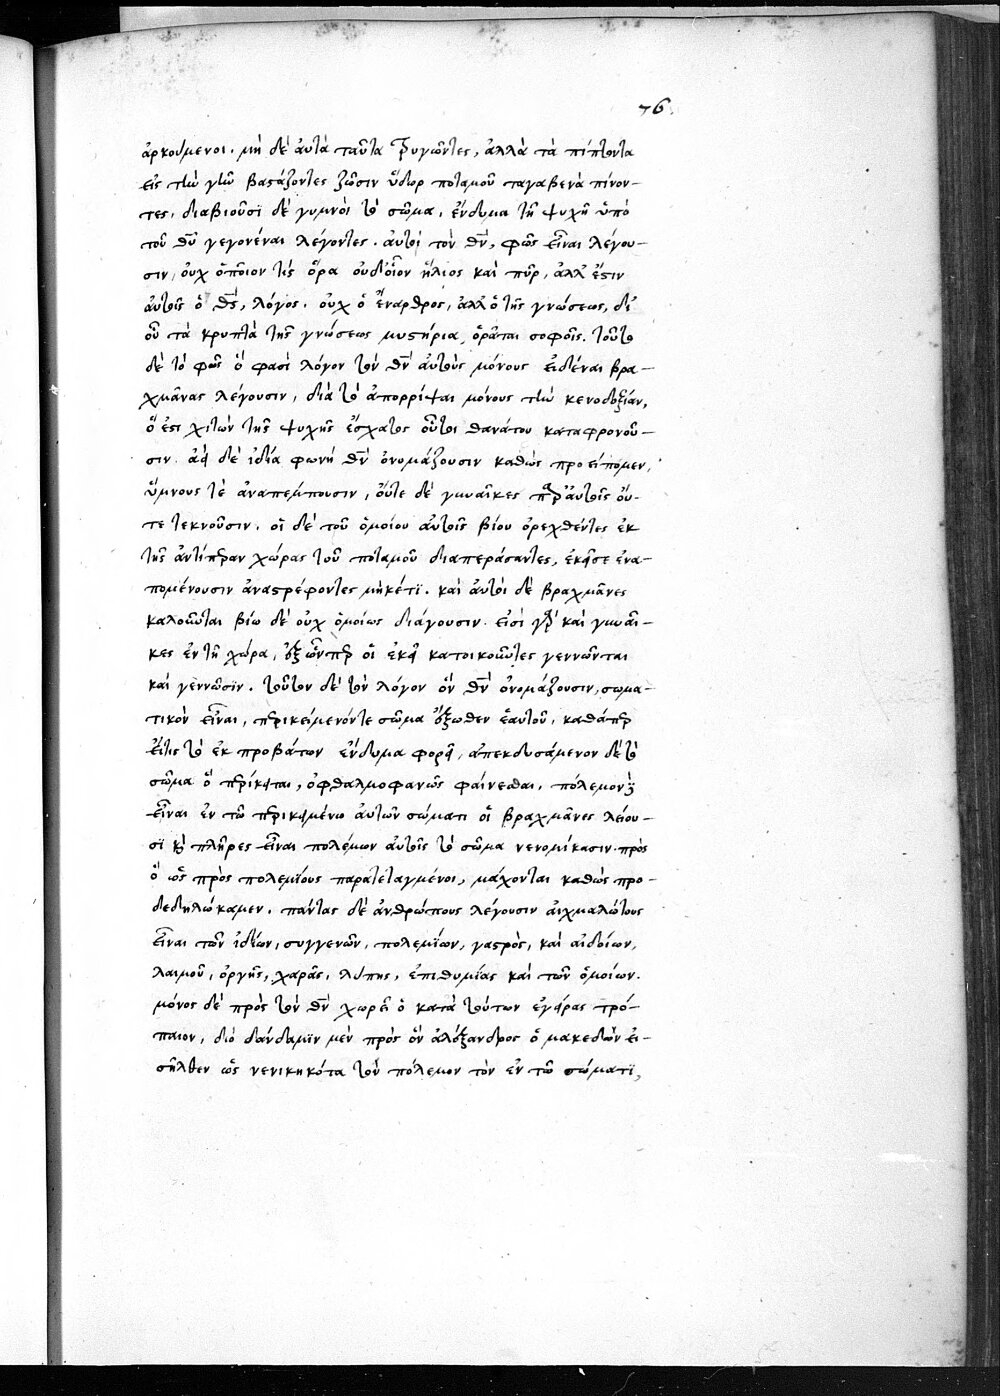 76.
ἀρκούμενοι. μὴ δὲ αὐτὰ ταῦτα τρυγῶντες, ἀλλὰ τὰ πίπτοντα
εἰς τὴν γῆν βαστάζοντες ζῶσιν ὕδωρ ποταμοῦ ταγαβενὰ πίνον-
τες, διαβιοῦσι δὲ γυμνοὶ τὸ σῶμα, ἔνδυμα τῇ ψυχῇ ὑπὸ
τοῦ θ̅υ̅ γεγονέναι λέγοντες. αὐτοὶ τὸν θ̅ν̅, φῶς εἶναι λέγου-
σιν, οὐχ ὁποῖον τὶς ὅρα οὐδ' οἷον ἥλιος καὶ πῦρ, ἀλλ' ἔστιν
αὐτοῖς ὁ θ̅ς̅, λόγος. οὐχ ὁ ἔναρθρος, ἀλλ' ὁ τῆς γνώσεως, δι'
οὗ τὰ κρυπτὰ τῆς γνώσεως μυστήρια ὁρᾶται σοφοῖς. τοῦτο
δὲ τὸ φῶς ὅ φασὶ λόγον τὸν θ̅ν̅ αὐτοὺς μόνους εἰδέναι βρα-
χμᾶνας λέγουσιν, διὰ τὸ ἀπορρίψαι μόνους τὴν κενοδοξίαν,
ὅ ἐστι χιτὼν τῆς ψυχῆς ἔσχατος οὗτοι θανάτου καταφρονοῦ-
σιν. ἀεὶ δὲ ἰδία φωνῆ θ̅ν̅ ὀνομάζουσιν καθὼς προείπομεν,
ὕμνους τὲ ἀναπέμπουσιν, οὔτε δὲ γυναῖκες παρ' αὐτοῖς οὔ-
τε τεκνοῦσιν. οἱ δὲ τοῦ ὁμοίου αὐτοῖς βίου ὀρεχθέντες ἐκ
τῆς ἀντίπεραν χώρας τοῦ ποταμοῦ διαπεράσαντες, ἐκεῖσε ἐνα-
πομένουσιν ἀναστρέφοντες μηκέτι. καὶ αὐτοὶ δὲ βραχμᾶνες
καλοῦνται βίω δὲ οὐχ ὁμοίως διάγουσιν. εἰσὶ γὰρ καὶ γυναῖ-
κες ἐν τῆ χώρα, ἐξ ὧνπερ οἱ ἐκεῖ κατοικοῦντες γεννῶνται
καὶ γεννῶσιν. τοῦτον δὲ τὸν λόγον ὃν θ̅ν̅ ὀνομάζουσιν, σωμα-
τικὸν εἶναι, περικείμενόντε σῶμα ἔξωθεν ἑαυτοῦ, καθάπερ
εἴτις τὸ ἐκ προβάτων ἔνδυμα φορεῖ, ἀπεκδυσάμενον δὲ τὸ
σῶμα ὃ περίκειται, ὀφθαλμοφανῶς φαίνεσθαι. πόλεμον δὲ
εἶναι ἐν τῶ περικειμένω αὐτῶν σώματι οἱ βραχμᾶνες λέγου-
σι καὶ πλῆρες εἶναι πολέμων αὐτοῖς τὸ σῶμα νενομίκασιν. πρὸς
ὃ ὡς πρὸς πολεμίους παρατεταγμένοι, μάχονται καθὼς προ-
δεδηλώκαμεν. πάντας δὲ ἀνθρώπους λέγουσιν αἰχμαλώτους
εἶναι τῶν ἰδίων, συγγενῶν, πολεμίων, γαστρὸς, καὶ αἰδοίων,
λαιμοῦ, ὀργῆς, χαρᾶς, λύπης, ἐπιθυμίας καὶ τῶν ὁμοίων.
μόνος δὲ πρὸς τὸν θ̅ν̅ χωρεῖ ὁ κατὰ τούτων ἐγείρας τρό-
παιον, διὸ δάνδαμιν μὲν πρὸς ὃν ἀλέξανδρος ὁ μακεδὼν εἰ-
σῆλθεν ὡς νενικηκότα τὸν πόλεμον τὸν ἐν τῶ σώματι,